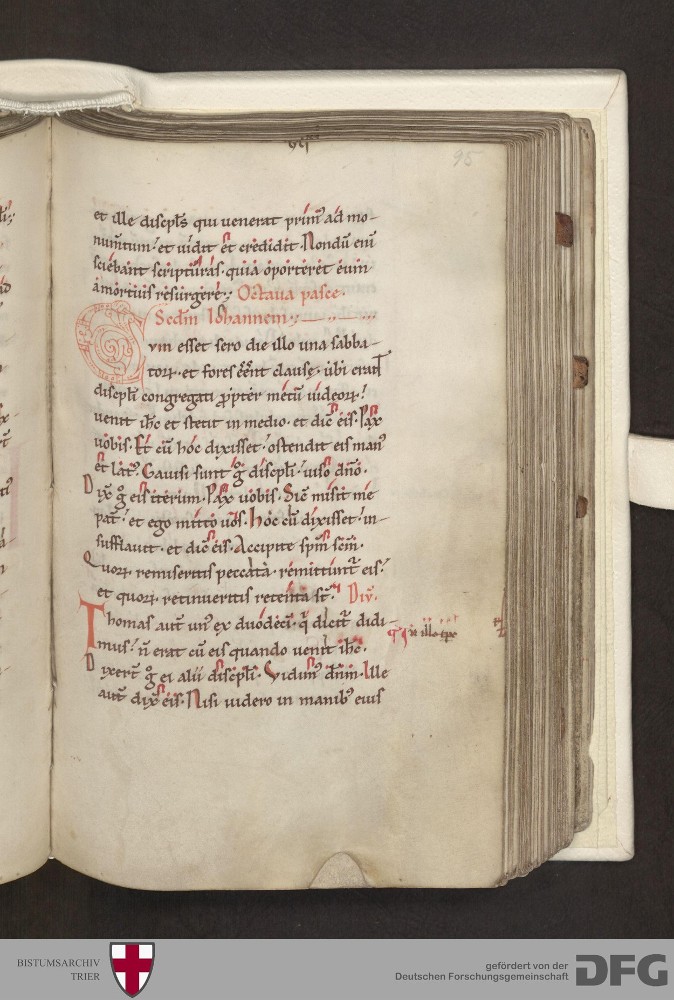 95
et ille discipłs qui uenerat primũ ad mo-
numtum· et uidit et credidit· Nondũ eni̅
sciebant scripturas· quia oporteret eum
a mortuis resurgere· Octaua pasce·
Scd̅m Iohannem·
Cum esset sero die illo una sabba-
torꝝ· et fores eẽnt clause· ubi erant
discipłi congregati ꝓpter metũ iudeorꝝ·
uenit ih̅c et stetit in medio· et dic̅ eis· Pax
uobis· Et cũ hoc dixisset· ostendit eis man᷒
et lat᷒· Gauisi sunt g̊ discipłi· uiso dn̅o·
Dix̅ g̊ eis iterum· Pax uobis· Sic̅ misit me
pat̅· et ego mitto uos· Hoc cũ dixisset· in-
sufflauit· et dic̅ eis· Accipite sp̅m sc̅m·
Quorꝝ remiseritis peccata· remittunt̅ eis·
et quorꝝ retinueritis retenta st̅·
Thomas aut̅ un᷒ ex duodeci̅· q̇ dicit̅ didi-
mus· n̅ erat cũ eis quando uenit ih̅c·
Dixert̅ g̊ ei alii discipłi· Vidim᷒ dn̅m· Ille
aut̅ dix̅ eis· Nisi uidero in manib᷒ eius
BISTUMSARCHIV
TRIER
gefördert von der
Deutschen Forschungsgemeinschaft
DFG